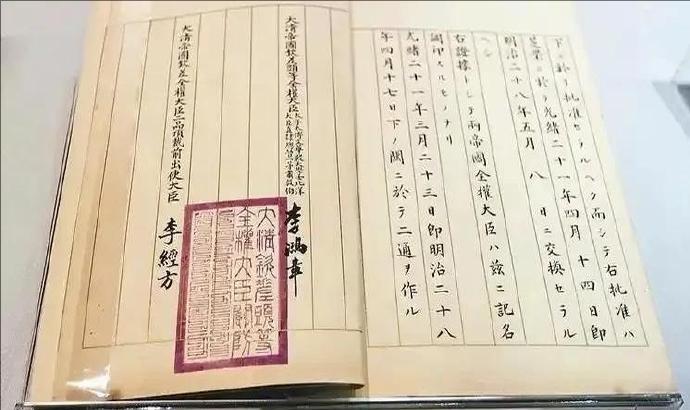 下ニ於テ批准セラルヘク而シテ右批准ハ
芝罘ニ於テ光緒二十一年四月十四日即
明治二十八年五月八日ニ交換セラル
ヘシ
右證據トシテ兩帝國全權大臣ハ茲ニ記名
調印スルモノナリ
光緒二十一年三月二十三日即明治二十八
年四月十七日下ノ關ニ於テ二通ヲ作ル
大清帝國欽差頭等全權大臣太子太傅文華殿大學士北洋大臣直隸總督一等肅毅伯
李鴻章
大清帝國欽差全權大臣二品頂戴前出使大臣
李經方
大清欽差頭等
全權大臣關防